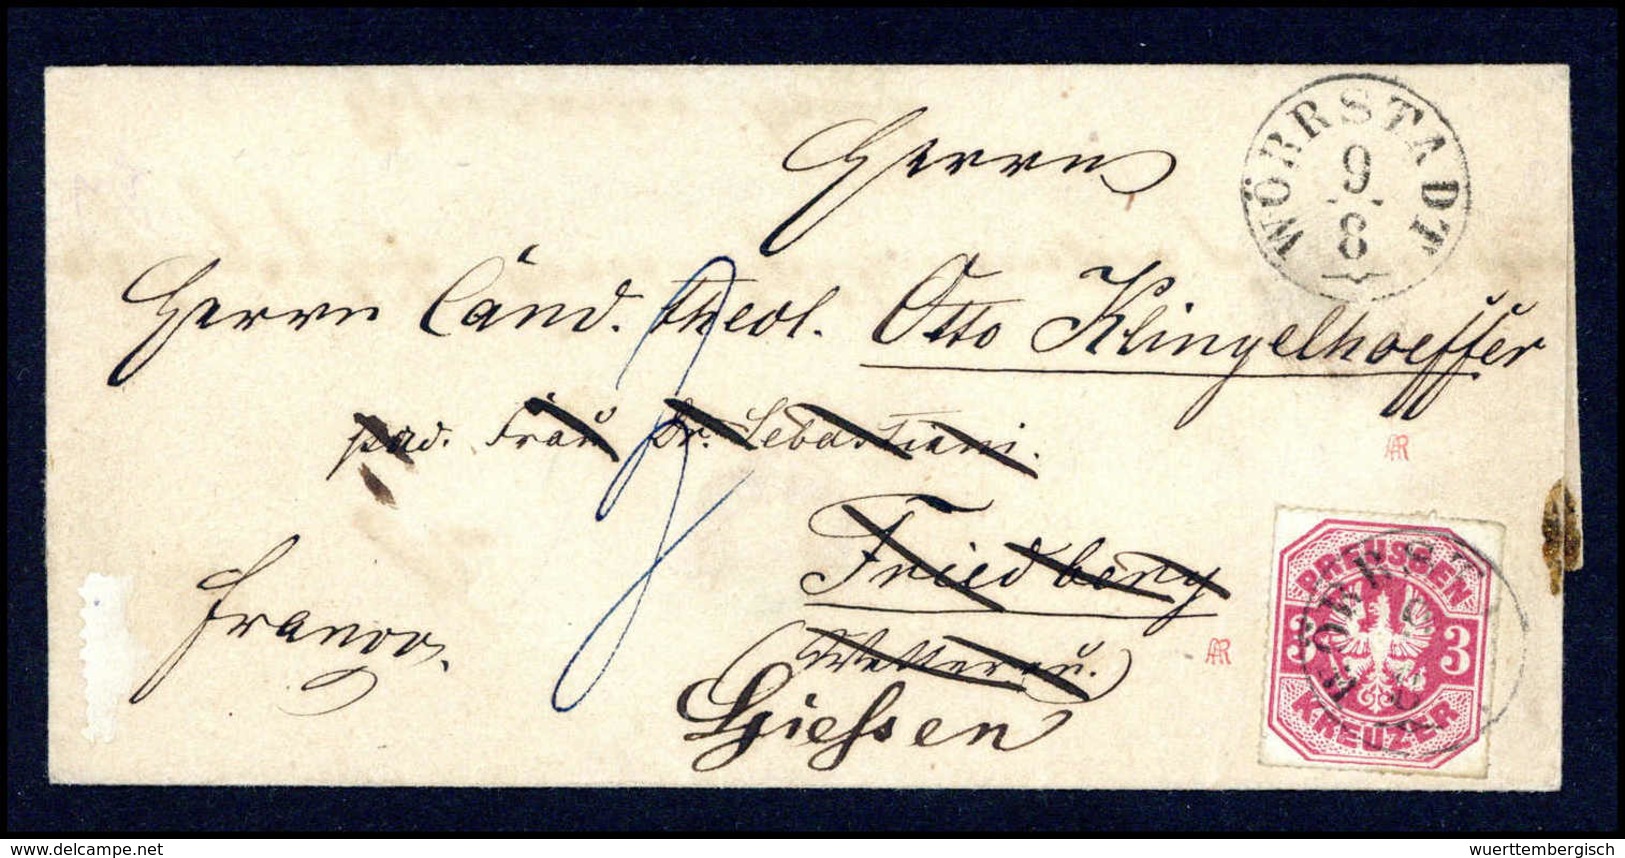 WÖRRSTADT
9
8
Herrn
Herrn Cand. theol. Otto Klingelhoeffer
pad. Frau Dr. Sebastiani.
Friedberg
(Wetterau.)
Giessen
franco.
PREUSSEN
3 3
KREUZER
delcampe.net
wuerttembergisch